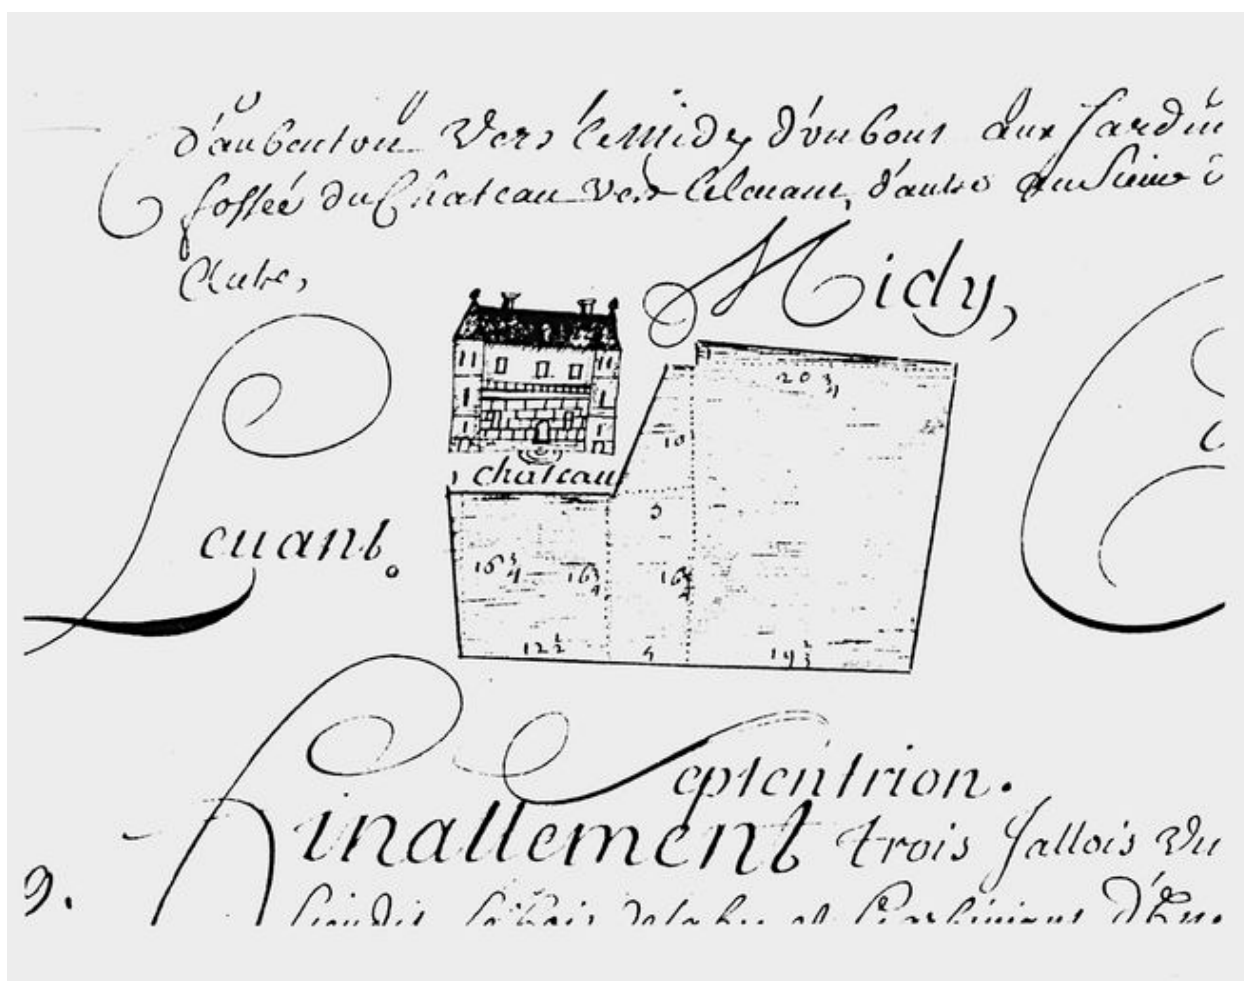 d'aubenton vers le midy d'un bout aux Jardin
fossée du Château vers le levant, d'autre au
Autre,
Midy,
20 3/4
10
château
5
Levant.
16 3/4 16 3/4 16 3/4
12 1/2
19 2/3
Septentrion.
Finallement trois Jallois
9.